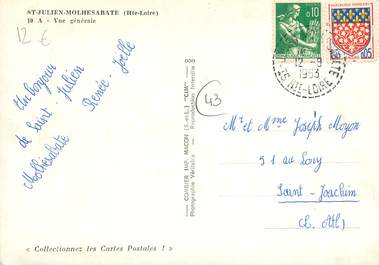 ST-JULIEN-MOLHESABATE (Hte-Loire)
10 A - Vue générale
12 €
Un bonjour
de Saint-Julien
Molhesabate
Renée-Joëlle
COMBIER IMP. MACON (S.-et-L.) "CIM"
Photographie Véritable - Reproduction Interdite
0.10
0.05
12-9
1963
HTE-LOIRE
43
Mr et Mme Joseph Moyon
51 au Lony
Saint-Joachim
(L. Atl)
« Collectionnez les Cartes Postales ! »